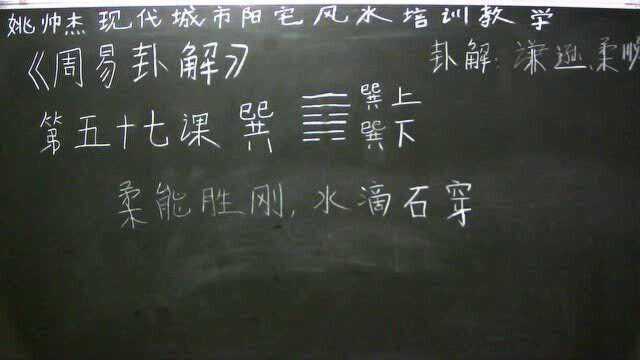 姚帅杰现代城市阳宅风水培训教学
《周易卦解》
卦解：谦逊、柔顺
第五十七课 巽 巽上
巽下
柔能胜刚，水滴石穿